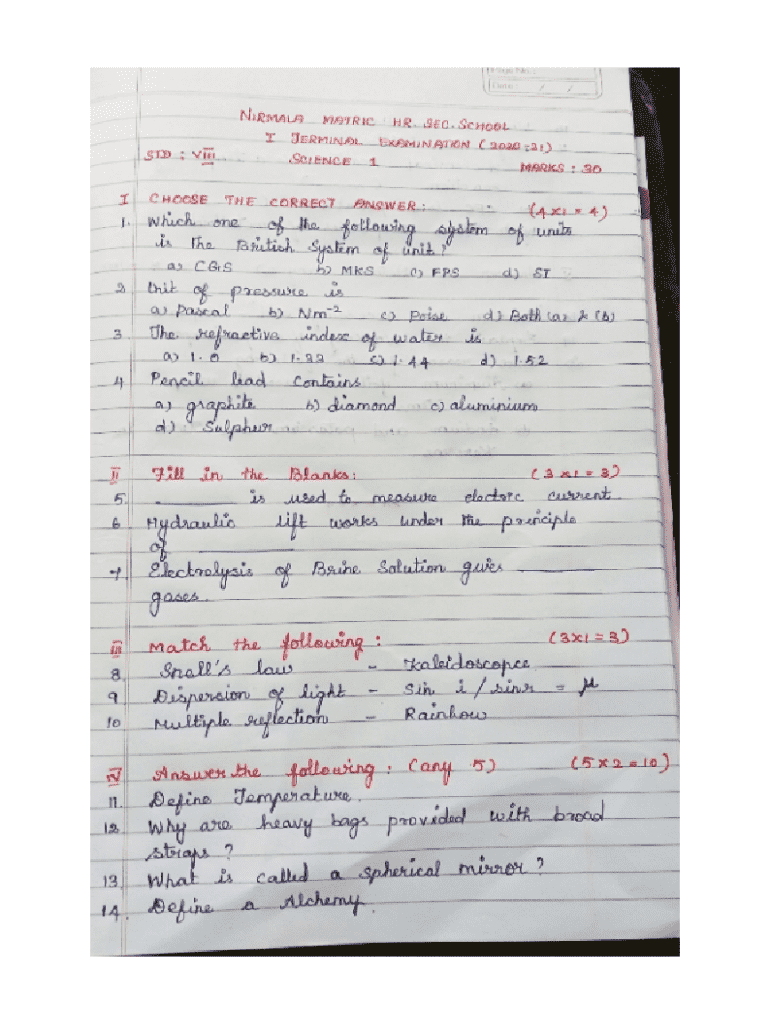 NIRMALA MATRIC HR. SEC. SCHOOL
I TERMINAL EXAMINATION (2020-21)
STD : VIII SCIENCE 1 MARKS : 30
I CHOOSE THE CORRECT ANSWER: (4x1=4)
1. Which one of the following system of units
is the British System of unit?
a) CGS b) MKS c) FPS d) SI
2 Unit of pressure is
a) Pascal b) Nm⁻² c) Poise d) Both (a) & (b)
3. The refractive index of water is
a) 1.0 b) 1.33 c) 1.44 d) 1.52
4 Pencil lead contains
a) graphite b) diamond c) aluminium
d) Sulphur
II Fill in the Blanks: (3x1=3)
5. ________ is used to measure electric current.
6. Hydraulic lift works under the principle
of ________
7. Electrolysis of Brine Solution gives ________
gases.
III Match the following : (3x1=3)
8. Snall's law - Kaleidoscope
9 Dispersion of light - Sin i / sin r = μ
10 Multiple reflection - Rainbow
IV Answer the following : (any 5) (5x2=10)
11. Define Temperature.
12. Why are heavy bags provided with broad
straps ?
13. What is called a spherical mirror ?
14. Define a Alchemy.